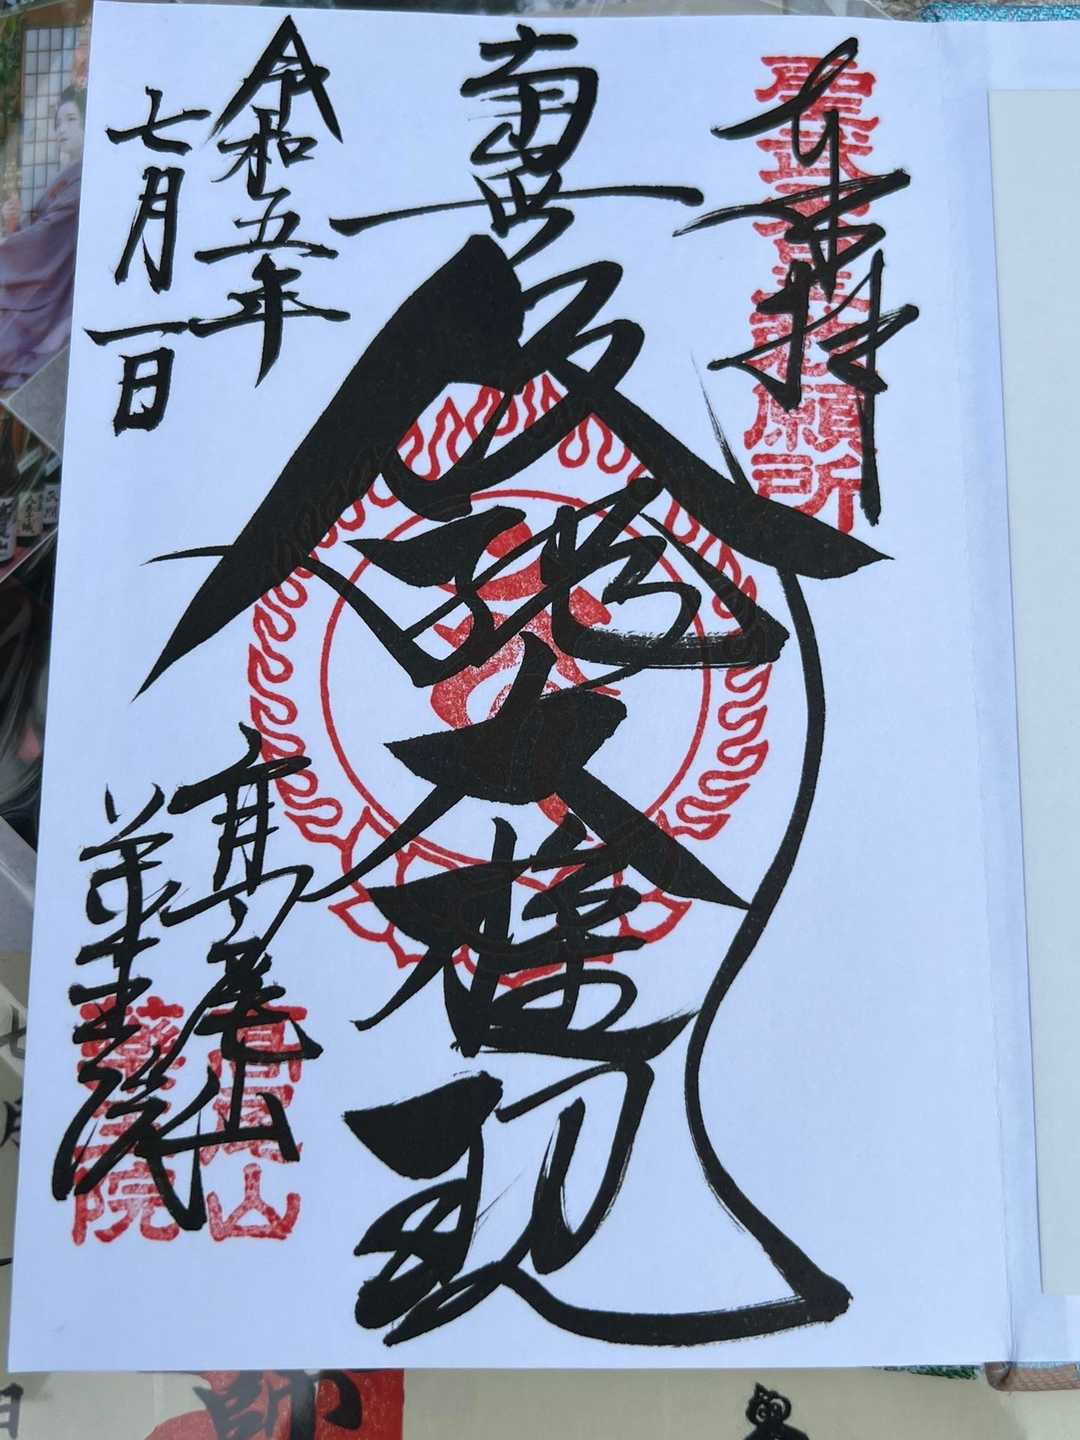 奉拝
聖武天皇勅願所
南無飯縄大権現
令和五年
七月一日
高尾山
薬王院
高尾山
薬王院